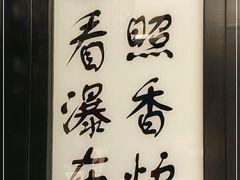 照香炉
看瀑布